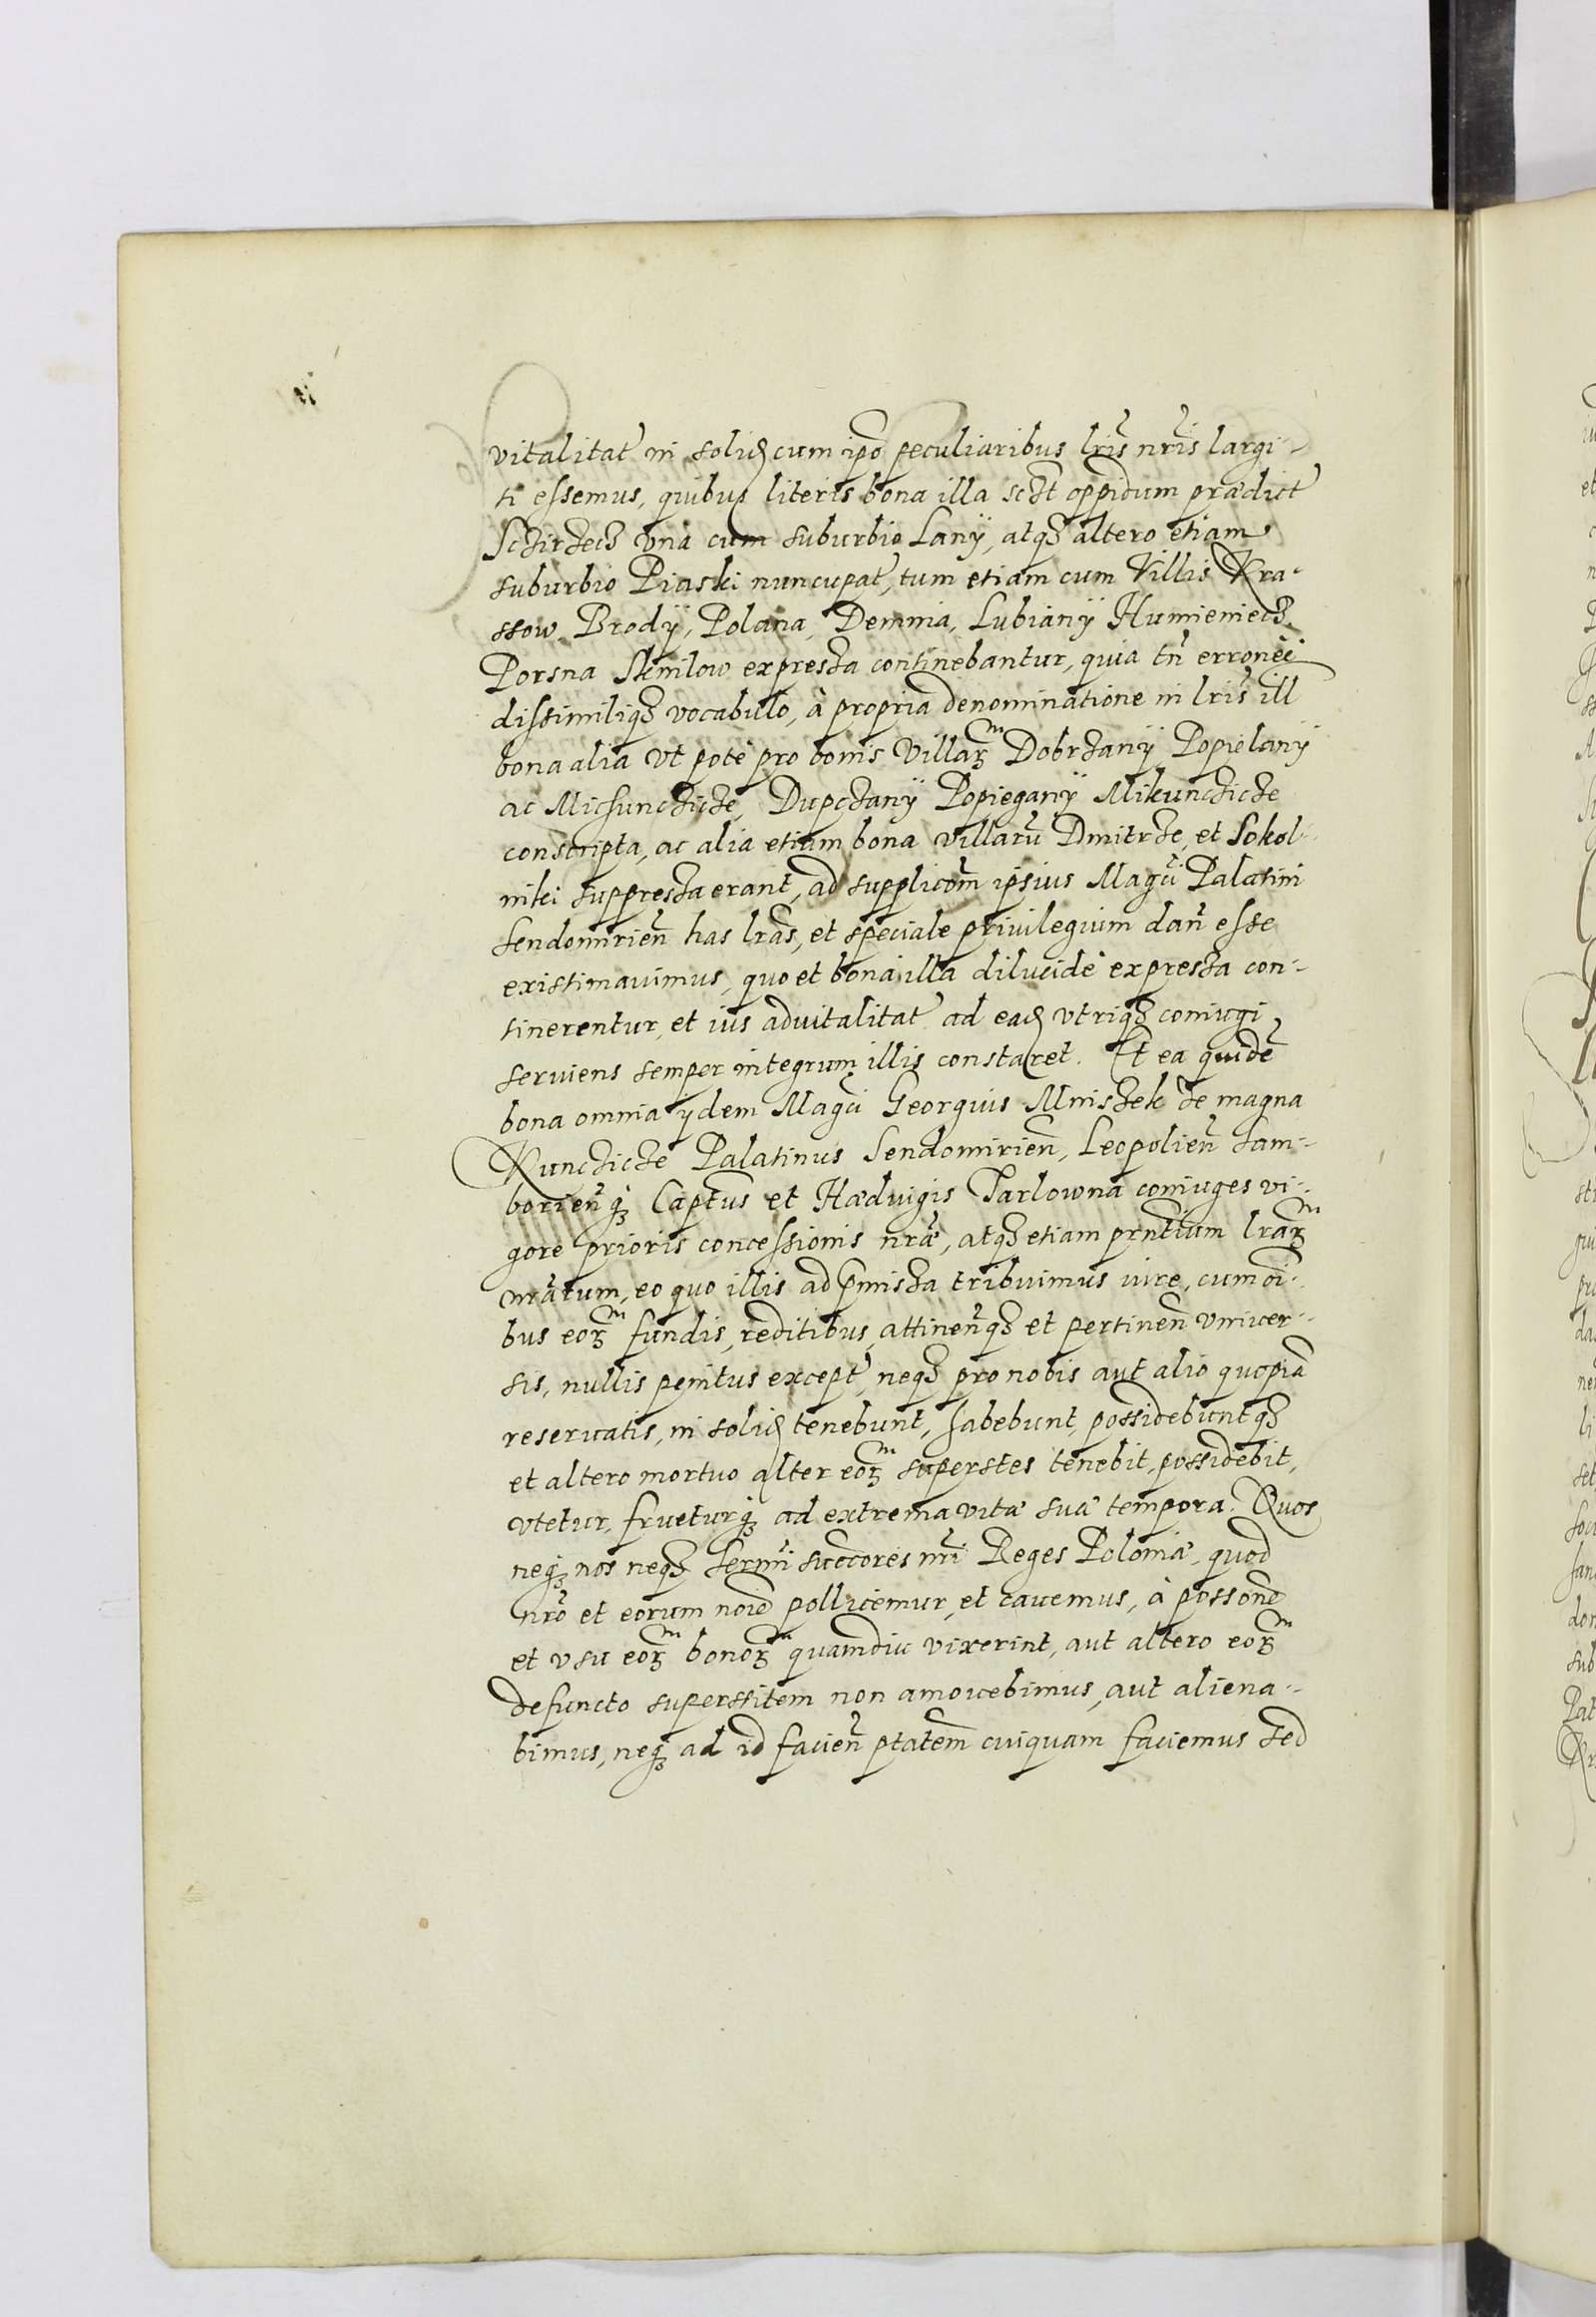 vitalitat̃ in solid cum ipõ peculiaribus lris̃ nris̃ largi-
ti essemus, quibus literis bona illa sczt oppidum prædict̃
Sczirzecz vna cum suburbio Lanÿ, atqȝ altero etiam
suburbio Piaski nuncupat̃, tum etiam cum Villis Kra-
ssow Brodÿ, Polana, Demnia, Lubianÿ Humieniecz
Porsna Sknilow expressa continebantur, quia tñ erronei
dissimiliqȝ vocabulo, à propria denominatione in lris̃ ill
bona alia vt potè pro bonis Villarȝ Dobrzanÿ Popielanÿ
ac Micsunczicze, Dupczanÿ Popieganÿ Mikunczicze
conscripta, ac alia etiam bona villarũ Dmitrze, et Sokol-
niki suppressa erant, ad supplicom̃ ipsius Magci Palatini
Sendomirien̄ has lras̃, et speciale priuilegium dan̄ esse
existimauimus, quo et bona illa dilucidè expressa con-
tinerentur, et ius aduitalitat̃ ad ead vtriqȝ coniugi
seruiens semper integrum illis constaret. Et ea quidē
bona omnia ÿdem Magci Georgius Mniszek de magna
Kunczicze Palatinus Sendomirien̄, Leopolien̄ Sam-
borien̄qȝ Captus̃ et Hæduigis Tarlowna coniuges vi-
gore prioris concessionis nræ̃, atqȝ etiam prntium̃ lrarȝ̃
nrãrum, eo quo illis ad pmissa tribuimus iure, cum oĩ-
bus eorȝ fundis, reditibus, attinen̄qȝ et pertinen̄ vniuer-
sis, nullis penitus except̃, neqȝ pro nobis aut alio quopiã
reseruatis, in solid tenebunt, habebunt, possidebuntqȝ
et altero mortuo alter eorȝ superstes tenebit, possidebit,
vtetur, frueturqȝ ad extrema vitæ suæ tempora. Quos
neqȝ nos neqȝ Sermi succores nri Reges Poloniæ, quod
nrõ et eorum noiẽ pollicemur, et cauemus, à possonẽ
et vsu eorȝ bonorȝ quamdiu vixerint, aut altero eorȝ
defuncto superstitem non amouebimus, aut aliena-
bimus, neqȝ ad id facien̄ ptatem̃ cuiquam faciemus sed